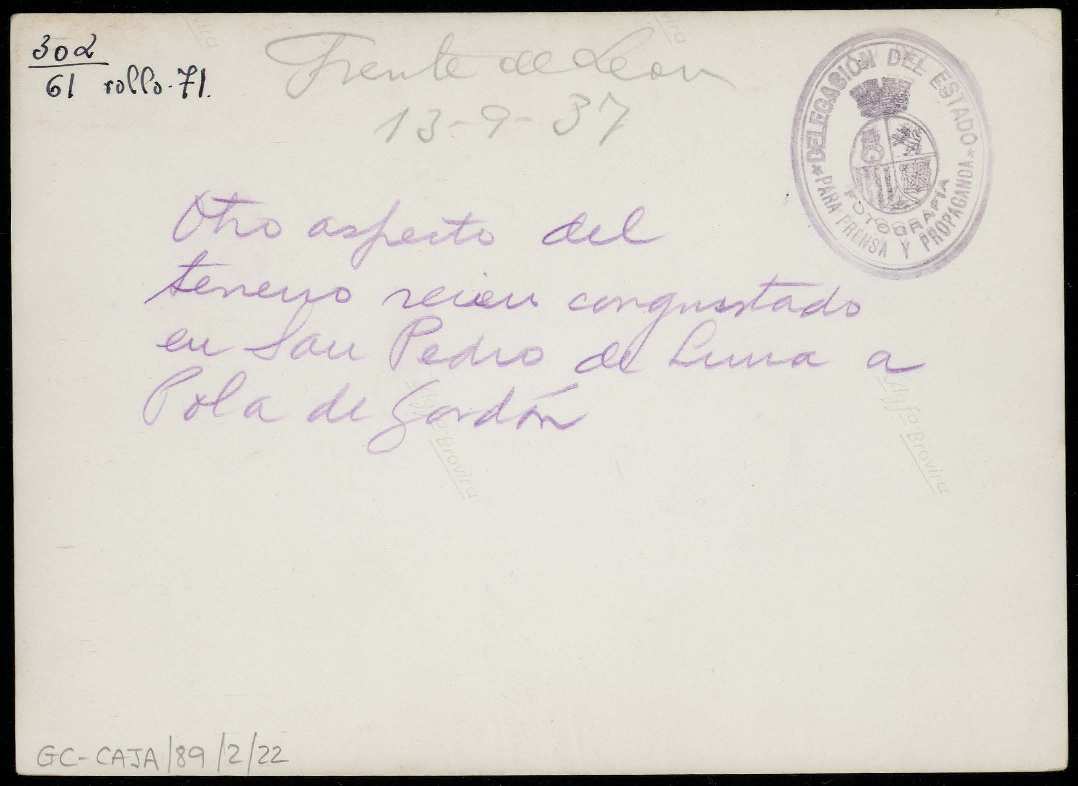 302
61 rollo-71.
Frente de Leon
13-9-37
DELEGASIÓN DEL ESTADO
PARA PRENSA Y PROPAGANDA
FOTOGRAFÍA
Otro aspecto del
terreno recien conquistado
en San Pedro de Luna a
Pola de Gordón
Agfa Brovira
Agfa Brovira
GC-CAJA/89/2/22